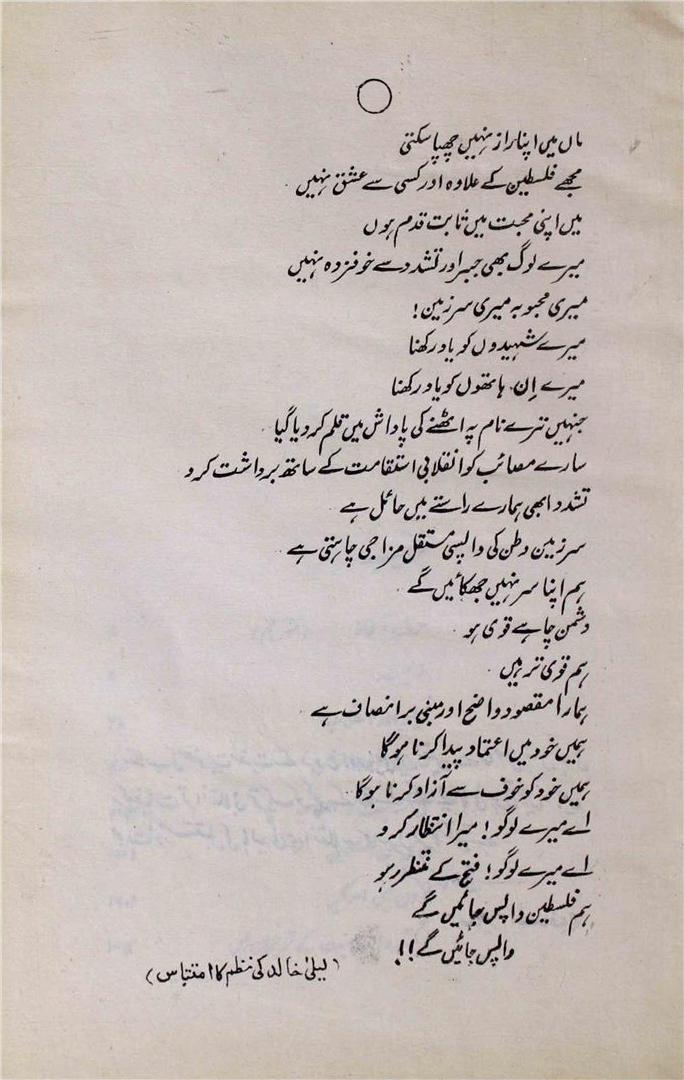 ماں میں اپنا راز نہیں چھپا سکتی
مجھے فلسطین کے علاوہ اور کسی سے عشق نہیں۔
میں اپنی محبت میں ثابت قدم ہوں
میرے لوگ بھی جبر اور تشدد سے خوفزدہ نہیں
میری محبوبہ میری سرزمین!
میرے شہیدوں کو یاد رکھنا
میرے اِن ہاتھوں کو یاد رکھنا
جنہیں تیرے نام پہ اٹھنے کی پاداش میں قلم کر دیا گیا۔
سارے مصائب کو انقلابی استقامت کے ساتھ برداشت کرو
تشدد ابھی ہمارے راستے میں حائل ہے۔
سرزمین وطن کی واپسی مستقل مزاجی چاہتی ہے۔
ہم اپنا سر نہیں جھکائیں گے۔
دشمن چاہے قوی ہو۔
ہم قوی تر ہیں۔
ہمارا مقصود واضح اور مبنی بر انصاف ہے۔
ہمیں خود میں اعتماد پیدا کرنا ہوگا
ہمیں خود کو خوف سے آزاد کرنا ہوگا۔
اے میرے لوگو! میرا انتظار کرو
اے میرے لوگو! فتح کے منتظر رہو
ہم فلسطین واپس جائیں گے
واپس جائیں گے!!
(لیلیٰ خالد کی نظم کا اقتباس)